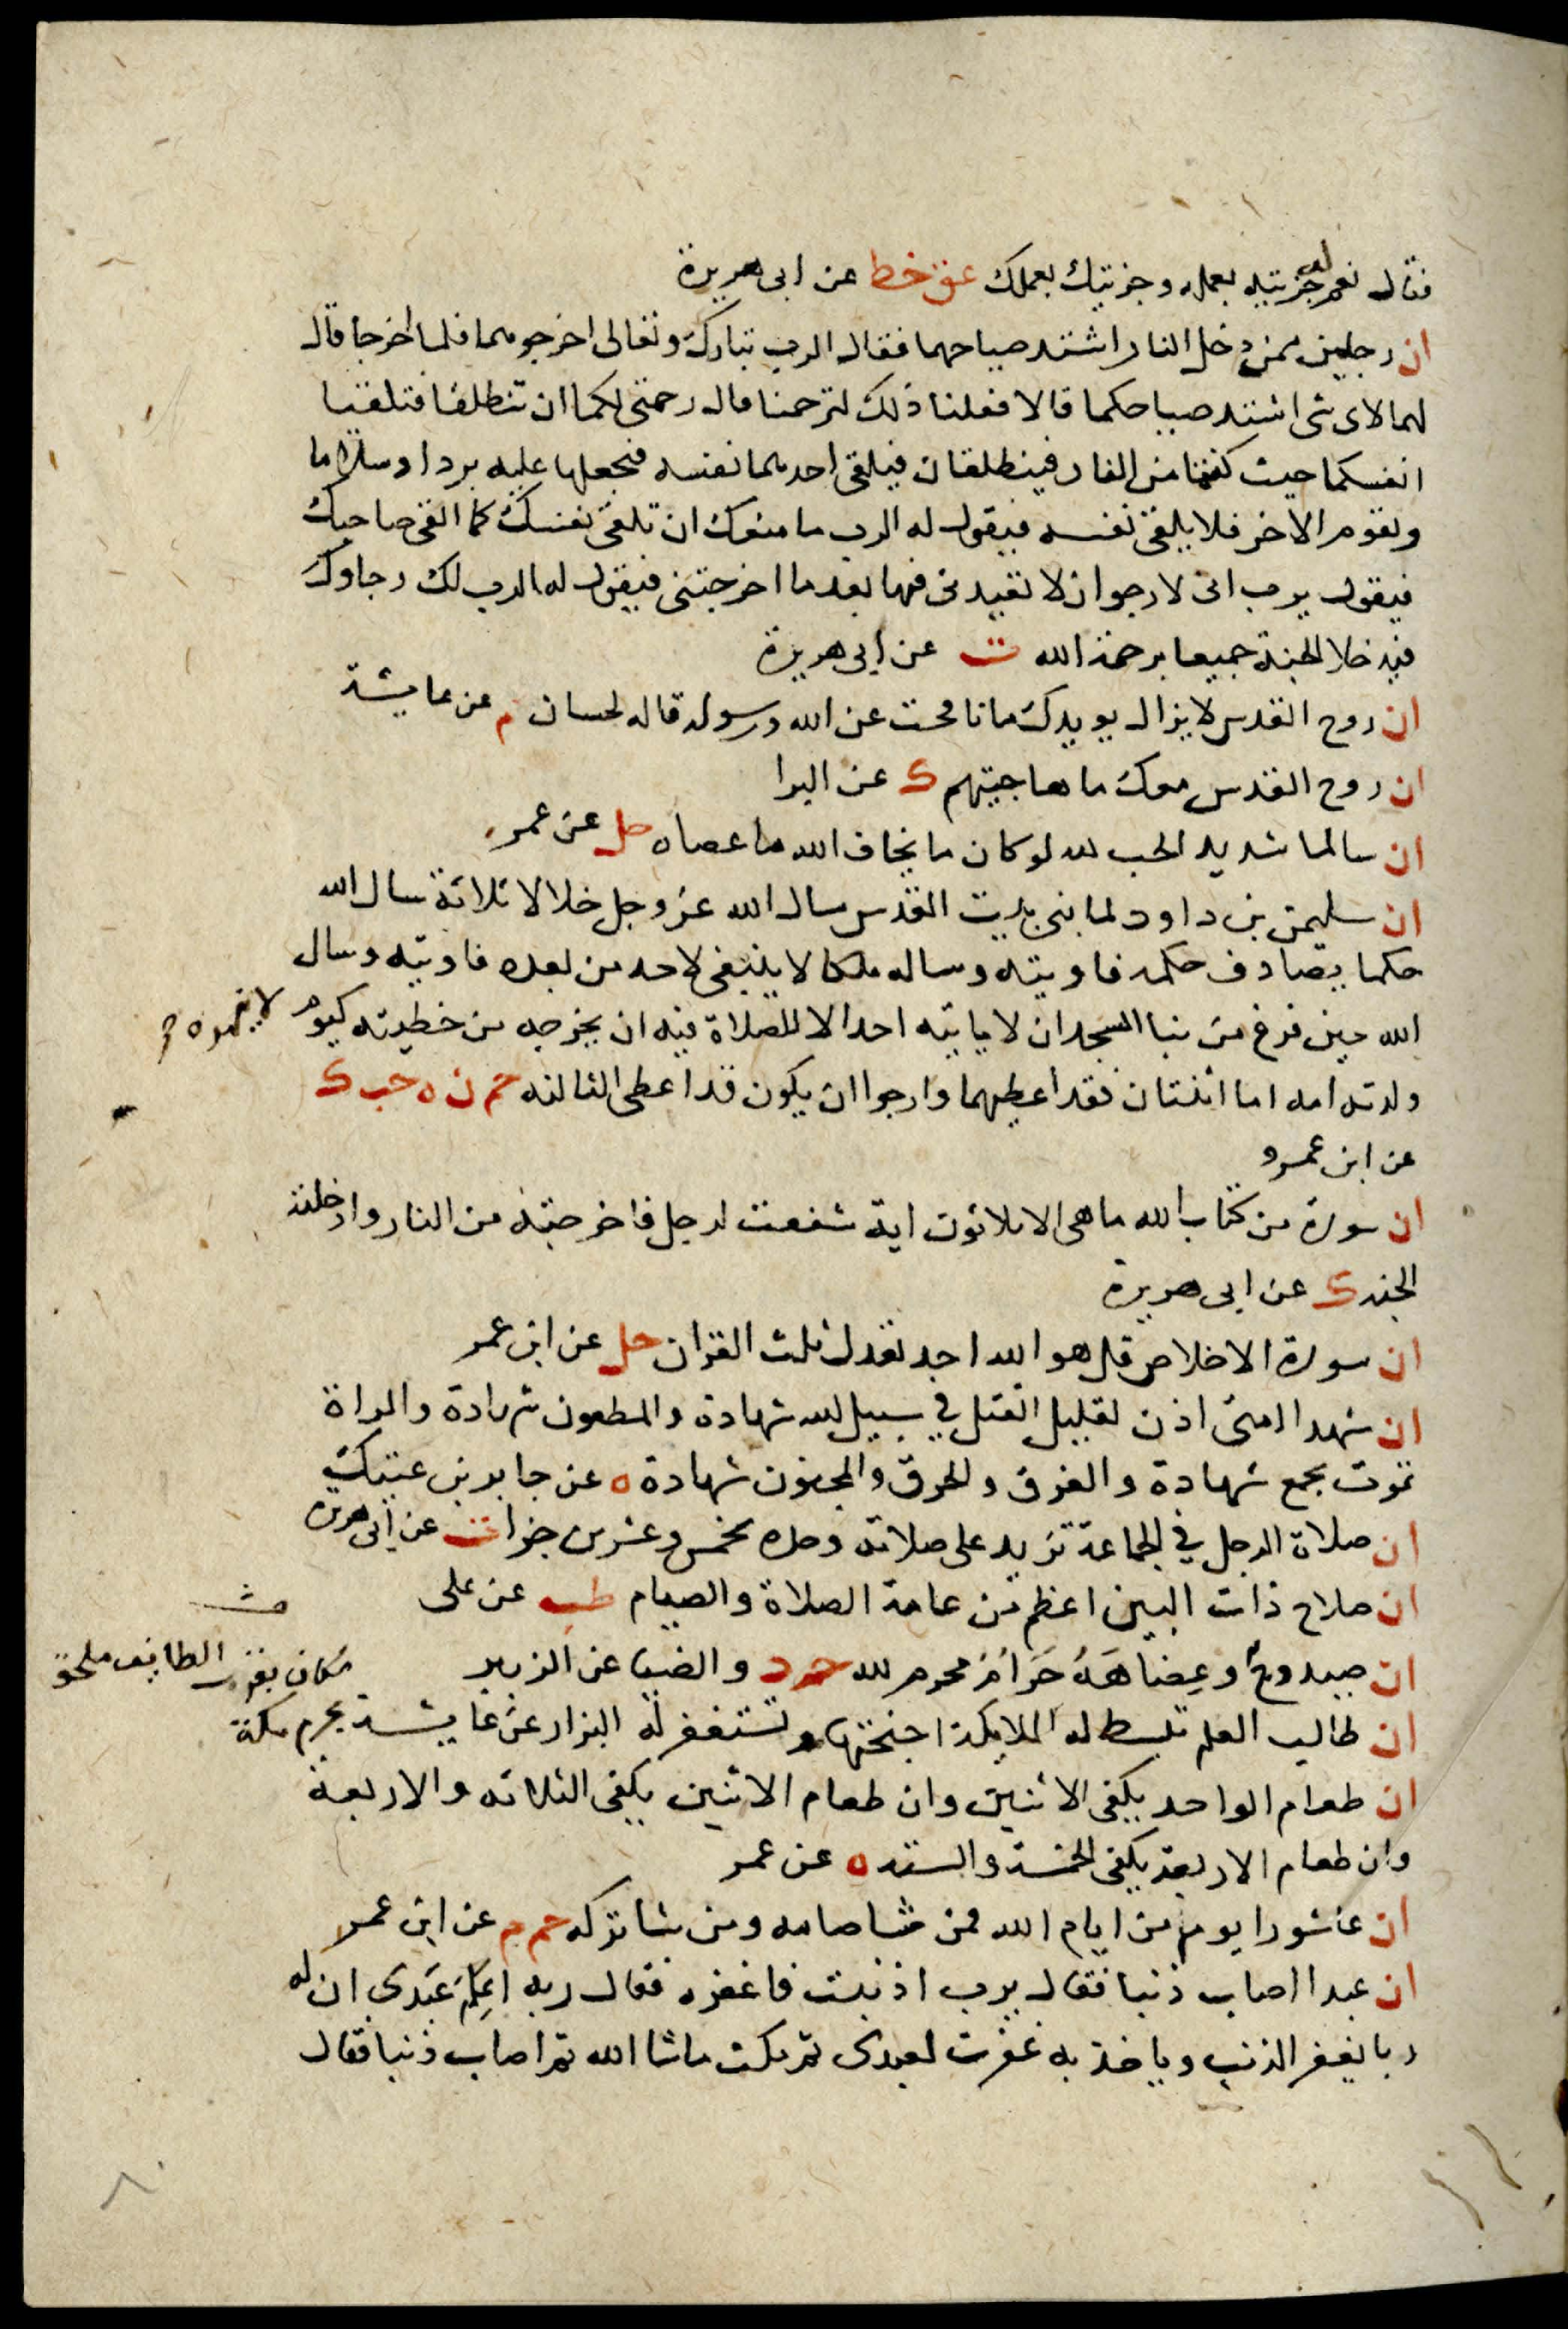 فقال نعم له جزيته بعمله وجزيتك بعملك عق خط عن ابى هريرة
ان رجلين ممن دخل النار اشتد صياحهما فقال الرب تبارك وتعالى اخرجوهما فلما اخرجا قال
لهما لاى شى اشتد صياحكما قالا فعلنا ذلك لترحمنا قال رحمتى لكما ان تنطلقا فتلقيا
انفسكما حيث كنتما من النار فينطلقان فيلقى احدهما نفسه فيجعلها عليه بردا وسلاما
ويقوم الاخر فلا يلقى نفسه فيقول له الرب ما منعك ان تلقى نفسك كما القى صاحبك
فيقول يرب انى لارجو ان لا تعيدنى فيها بعد ما اخرجتنى فيقول له الرب لك رجاوك
فيدخلا الجنة جميعا برحمة الله ت عن ابى هريرة
ان روح القدس لا يزال يويدك ما نافحت عن الله ورسوله قاله لحسان م عن عايشة
ان روح القدس معك ما هاجيتهم ك عن البرا
ان سالما شديد الحب لله لو كان ما يخاف الله ما عصاه حل عن عمر
ان سليمن بن داود لما بنى بيت المقدس سال الله عز وجل خلالا ثلاثة سال الله
حكما يصادف حكمه فاوتيه وساله ملكا لا ينبغى لاحد من بعده فاوتيه وسال
الله حين فرغ من بنا المسجد ان لا ياتيه احد الا للصلاة فيه ان يخرجه من خطيئته كيوم
لا ينهزه
ولدته امه اما اثنتان فقد اعطيهما وارجوا ان يكون قد اعطى الثالثه حم ن ه حب ك
عن ابن عمرو
ان سورة من كتاب الله ما هى الا ثلاثون اية شفعت لرجل فاخرجته من النار وادخلته
الجنة ك عن ابى هريرة
ان سورة الاخلاص قل هو الله احد تعدل ثلث القران حل عن ابن عمر
ان شهدا امتى اذن لقليل القتل في سبيل الله شهادة والمطعون شهادة والمراة
تموت بجمع شهادة والغرق والحرق والمجنون شهادة ه عن جابر بن عتيك
ان صلاة الرجل في الجماعة تزيد على صلاته وحده بخمس وعشرين جزا ت عن ابى هريره
ان صلاح ذات البين اعظم من عامة الصلاة والصيام طب عن على
ان صيد وج وعضاهه حرام محرم لله حم د والضيا عن الزبير
مكان بقرب الطايف ملحق
بحرم مكة
ان طالب العلم تبسط له الملايكة اجنحتها وتستغفر له البزار عن عايشة
ان طعام الواحد يكفى الاثنين وان طعام الاثنين يكفى الثلاثه والاربعة
وان طعام الاربعة يكفى الخمسة والستة ه عن عمر
ان عاشورا يوم من ايام الله فمن شا صامه ومن شا تركه حم م عن ابن عمر
ان عبدا اصاب ذنبا فقال يرب اذنبت فاغفره فقال ربه اعلم عبدى ان له
ربا يغفر الذنب وياخذ به غفرت لعبدى ثم مكث ماشا الله ثم اصاب ذنبا فقال